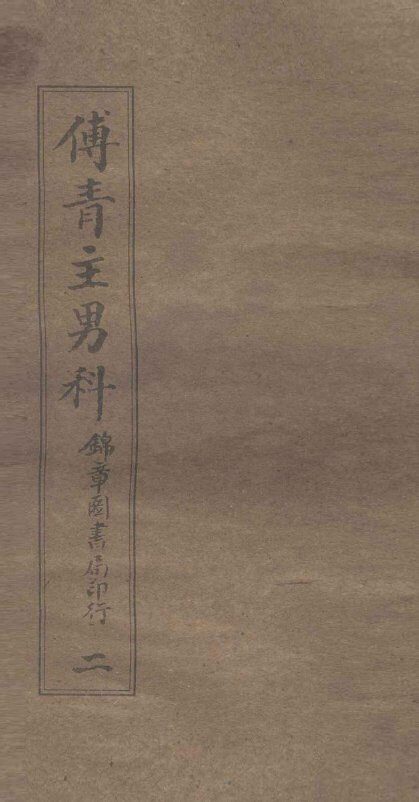 傅青主男科
錦章圖書局印行
二